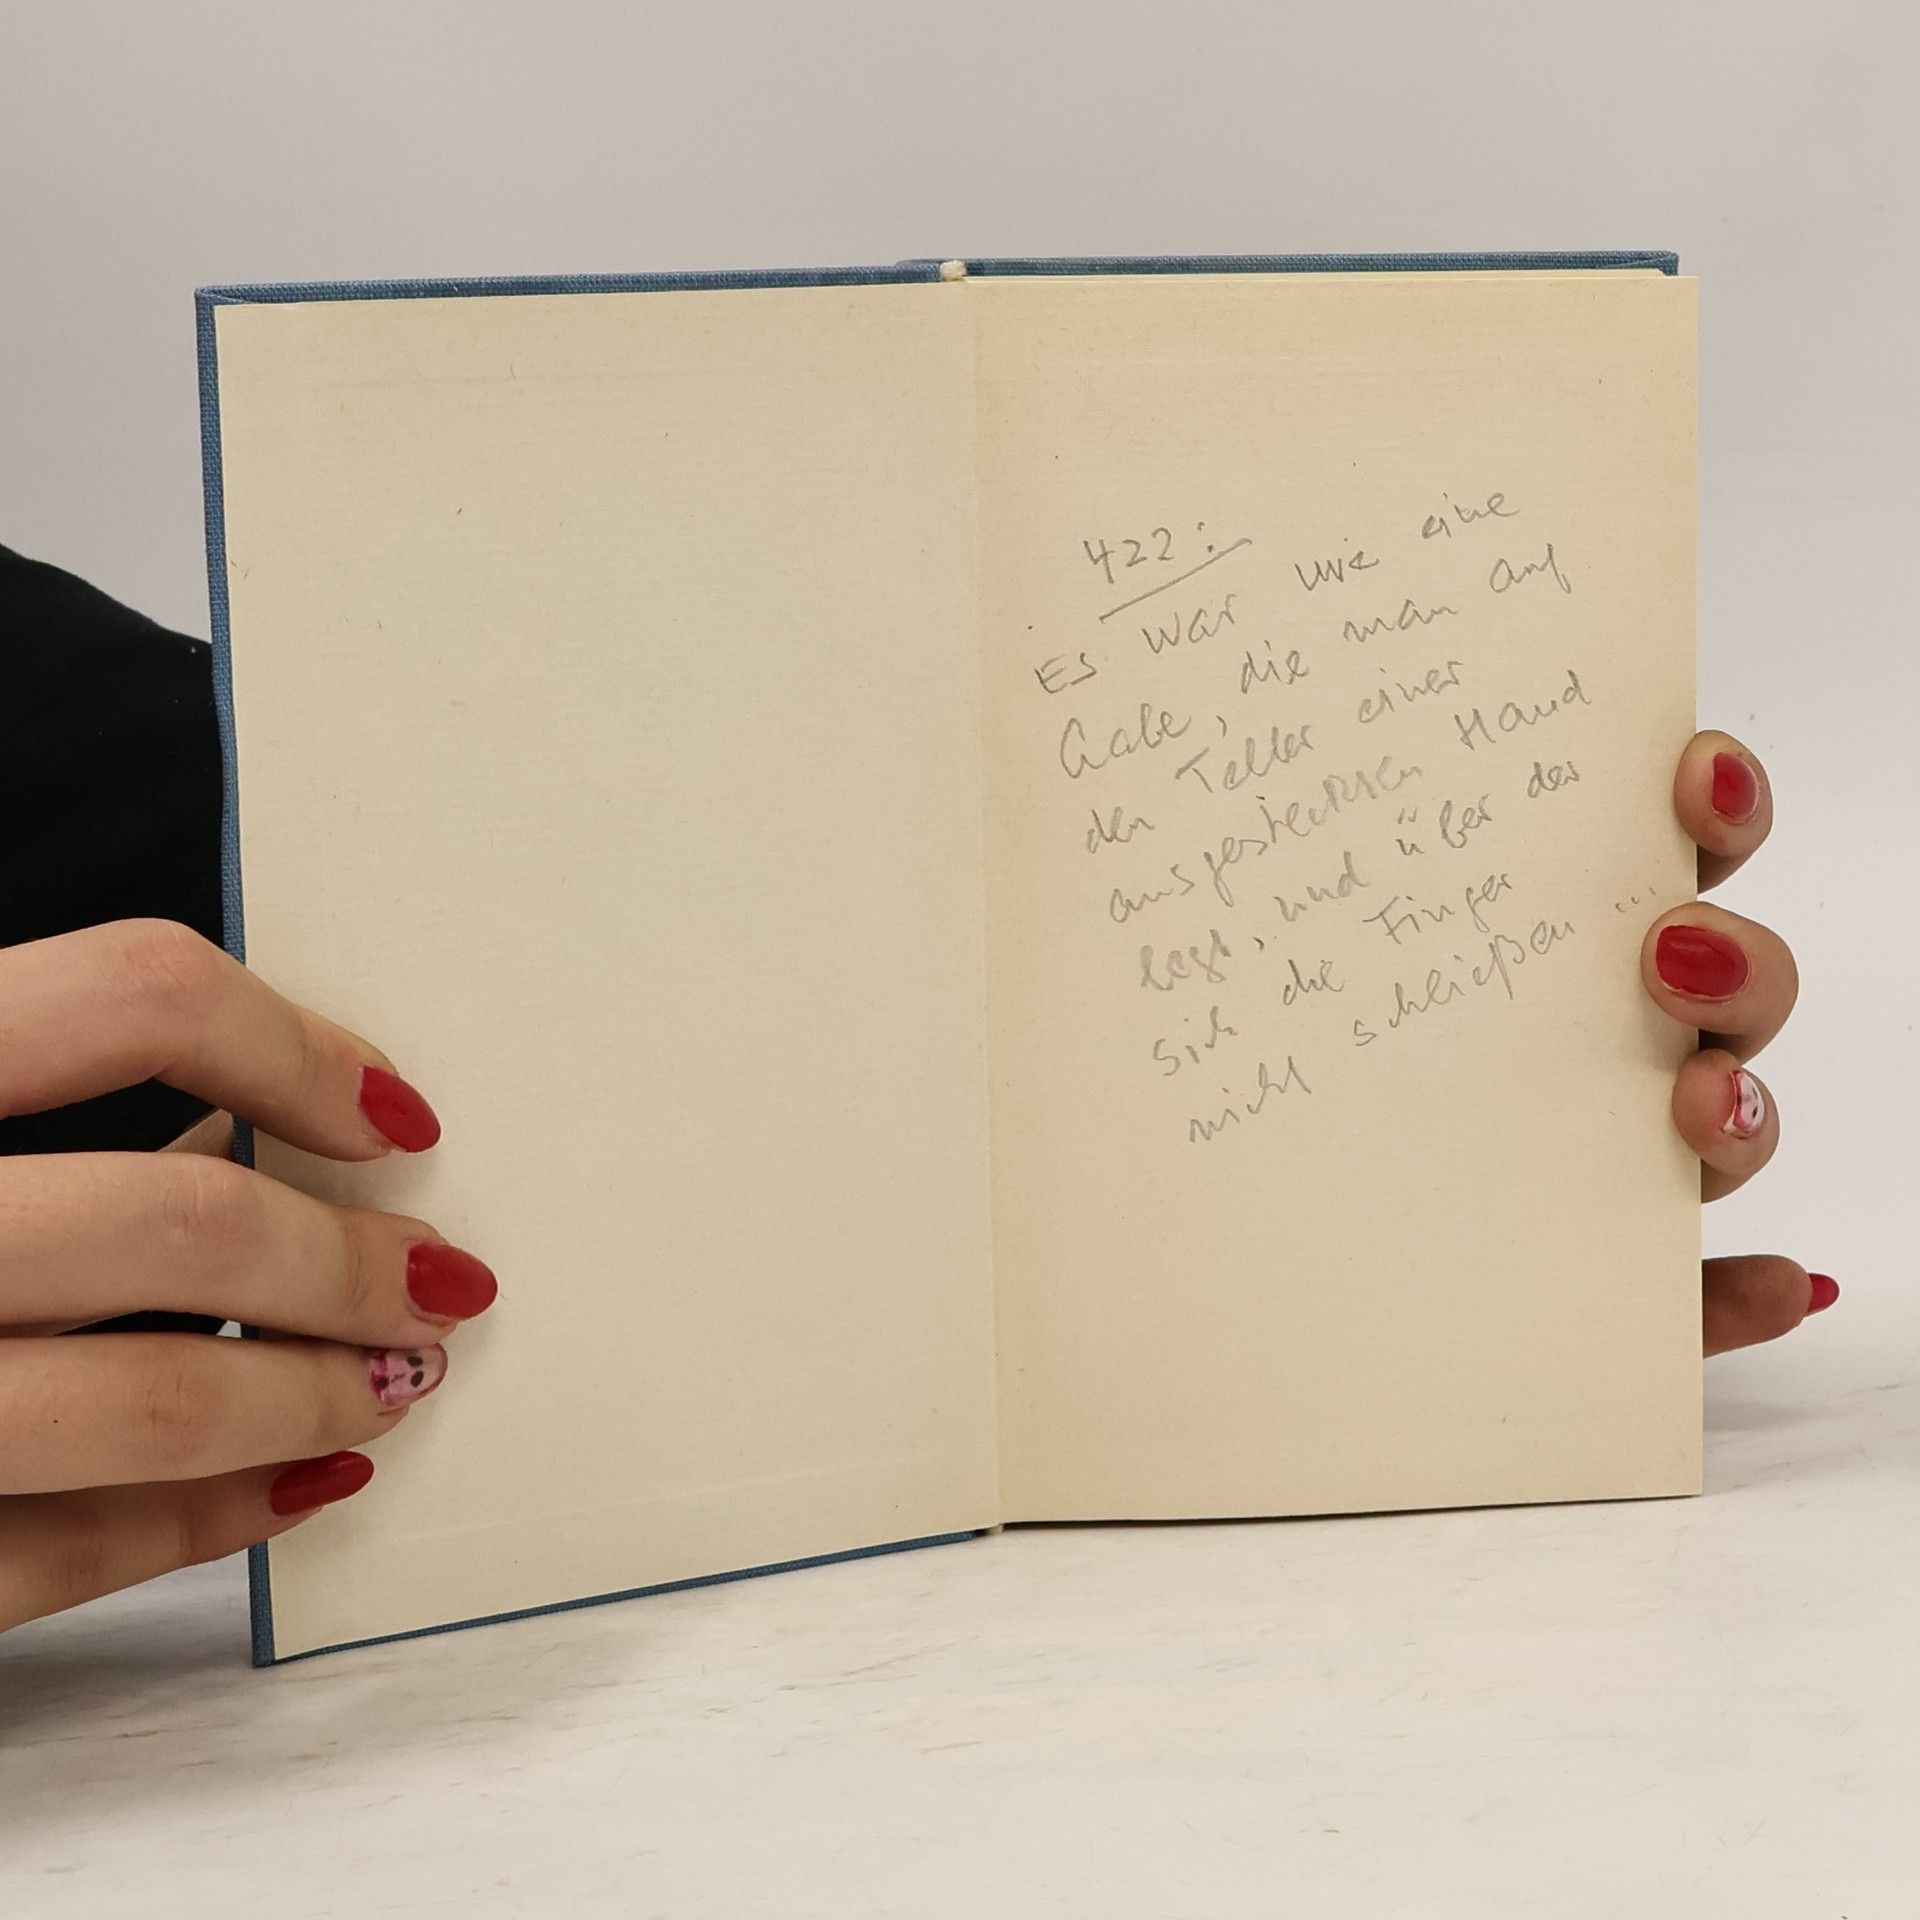 422:
Es war wie eine
Gabe, die man auf
den Teller einer
ausgestreckten Hand
legt, und über der
sich die Finger
nicht schließen "